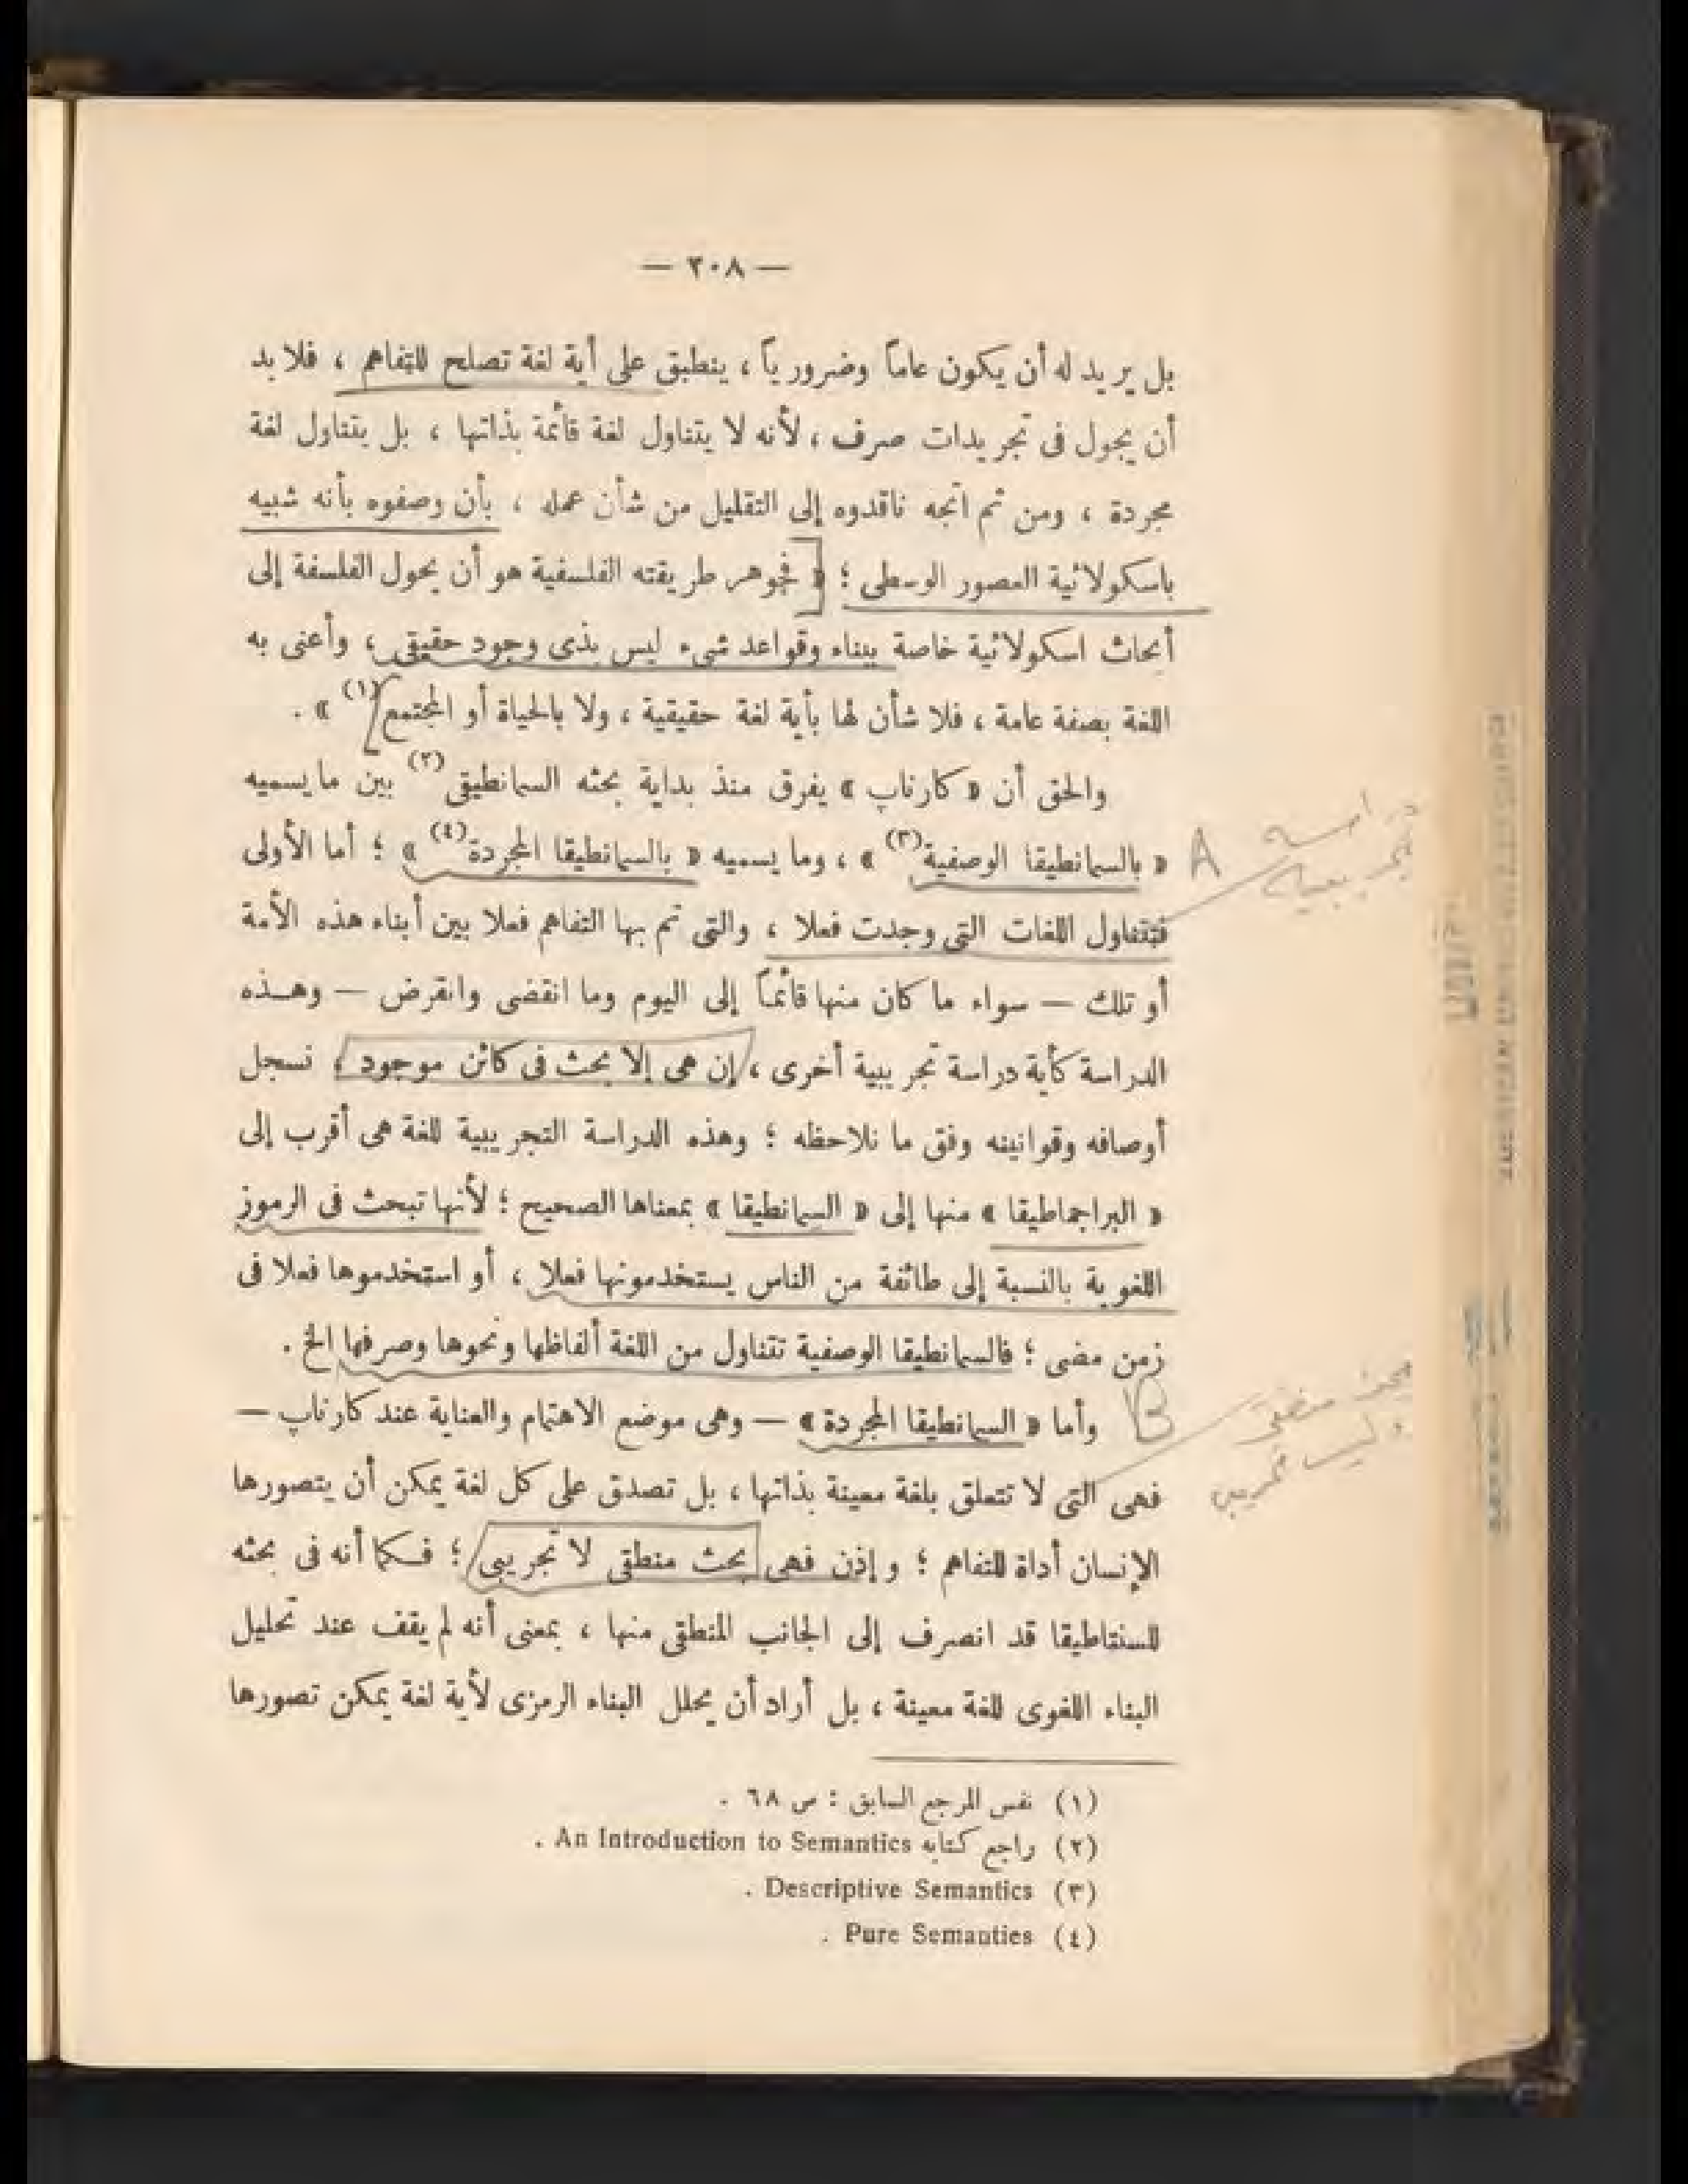 — ٢٠٨ —
بل يريد له أن يكون عاماً وضرورياً ، ينطبق على أية لغة تصلح للتفاهم ، فلا بد
أن يجول فى تجريدات صرف ، لأنه لا يتناول لغة قائمة بذاتها ، بل يتناول لغة
مجردة ، ومن ثم اتجه ناقدوه إلى التقليل من شأن عمله ، بأن وصفوه بأنه شبيه
باسكولائية العصور الوسطى ؛ « فجوهر طريقته الفلسفية هو أن يحول الفلسفة إلى
أبحاث اسكولائية خاصة ببناء وقواعد شىء ليس بذى وجود حقيقى ، وأعنى به
اللغة بصفة عامة ، فلا شأن لها بأية لغة حقيقية ، ولا بالحياة أو المجتمع (١) » .
والحق أن « كارناپ » يفرق منذ بداية بحثه السمانطيقى (٢) بين ما يسميه
« بالسمانطيقا الوصفية (٣) » ، وما يسميه « بالسمانطيقا المجردة (٤) » ؛ أما الأولى
A
دراسة
تجريبية
فتتناول اللغات التى وجدت فعلا ، والتى تم بها التفاهم فعلا بين أبناء هذه الأمة
أو تلك — سواء ما كان منها قائماً إلى اليوم وما انقضى وانقرض — وهذه
الدراسة كأية دراسة تجريبية أخرى ، إن هى إلا بحث فى كائن موجود ، نسجل
أوصافه وقوانينه وفق ما نلاحظه ؛ وهذه الدراسة التجريبية للغة هى أقرب إلى
« البراجماطيقا » منها إلى « السمانطيقا » بمعناها الصحيح ؛ لأنها تبحث فى الرموز
اللغوية بالنسبة إلى طائفة من الناس يستخدمونها فعلا ، أو استخدموها فعلا فى
زمن مضى ؛ فالسمانطيقا الوصفية تتناول من اللغة ألفاظها ونحوها وصرفها الخ .
وأما « السمانطيقا المجردة » — وهى موضع الاهتمام والعناية عند كارناپ —
B
بحث منطقى
وليس تجريبى
فهى التى لا تتعلق بلغة معينة بذاتها ، بل تصدق على كل لغة يمكن أن يتصورها
الإنسان أداة للتفاهم ؛ وإذن فهى بحث منطقى لا تجريبى ؛ فكما أنه فى بحثه
للسنتاطيقا قد انصرف إلى الجانب المنطقى منها ، بمعنى أنه لم يقف عند تحليل
البناء اللغوى للغة معينة ، بل أراد أن يحلل البناء الرمزى لأية لغة يمكن تصورها
(١) نفس المرجع السابق : ص ٦٨ .
(٢) راجع كتابه An Introduction to Semantics .
(٣) Descriptive Semantics .
(٤) Pure Semanties .